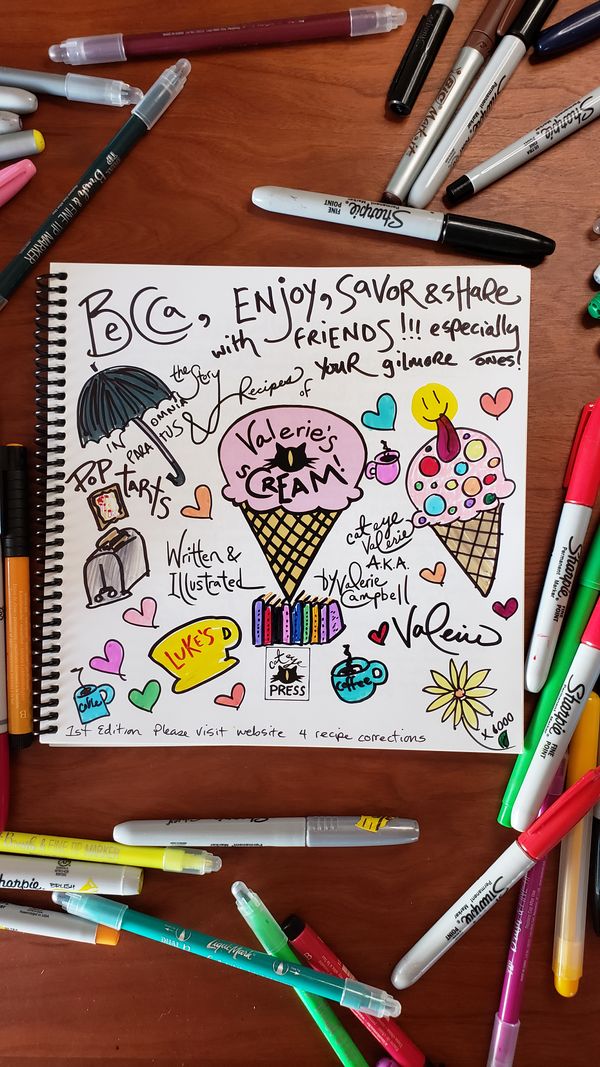 BeCCa, ENJOY, SAVOR & SHARE
with FRIENDS!!! especially
YOUR gilmore ones!
the Story
& Recipes of
IN OMNIA
PARATUS
Valerie's
sCREAM!
POP
TARTS
Written &
Illustrated
cat eye
Valerie
A.K.A.
by Valerie
Campbell
Valerie
LUKE'S
cat eye
PRESS
coffee
coke
x 6000
1st Edition Please visit website 4 recipe corrections
Sharpie
FINE POINT
Permanent Marker
Sharpie
Permanent Marker
BIC Mark-it
Sharpie
Brush & FINE TIP MARKER
Sharpie
Sharpie
Sharpie
Permanent Marker
Brush & FINE TIP MARKER
Sharpie
BRUSH
LiquiMark